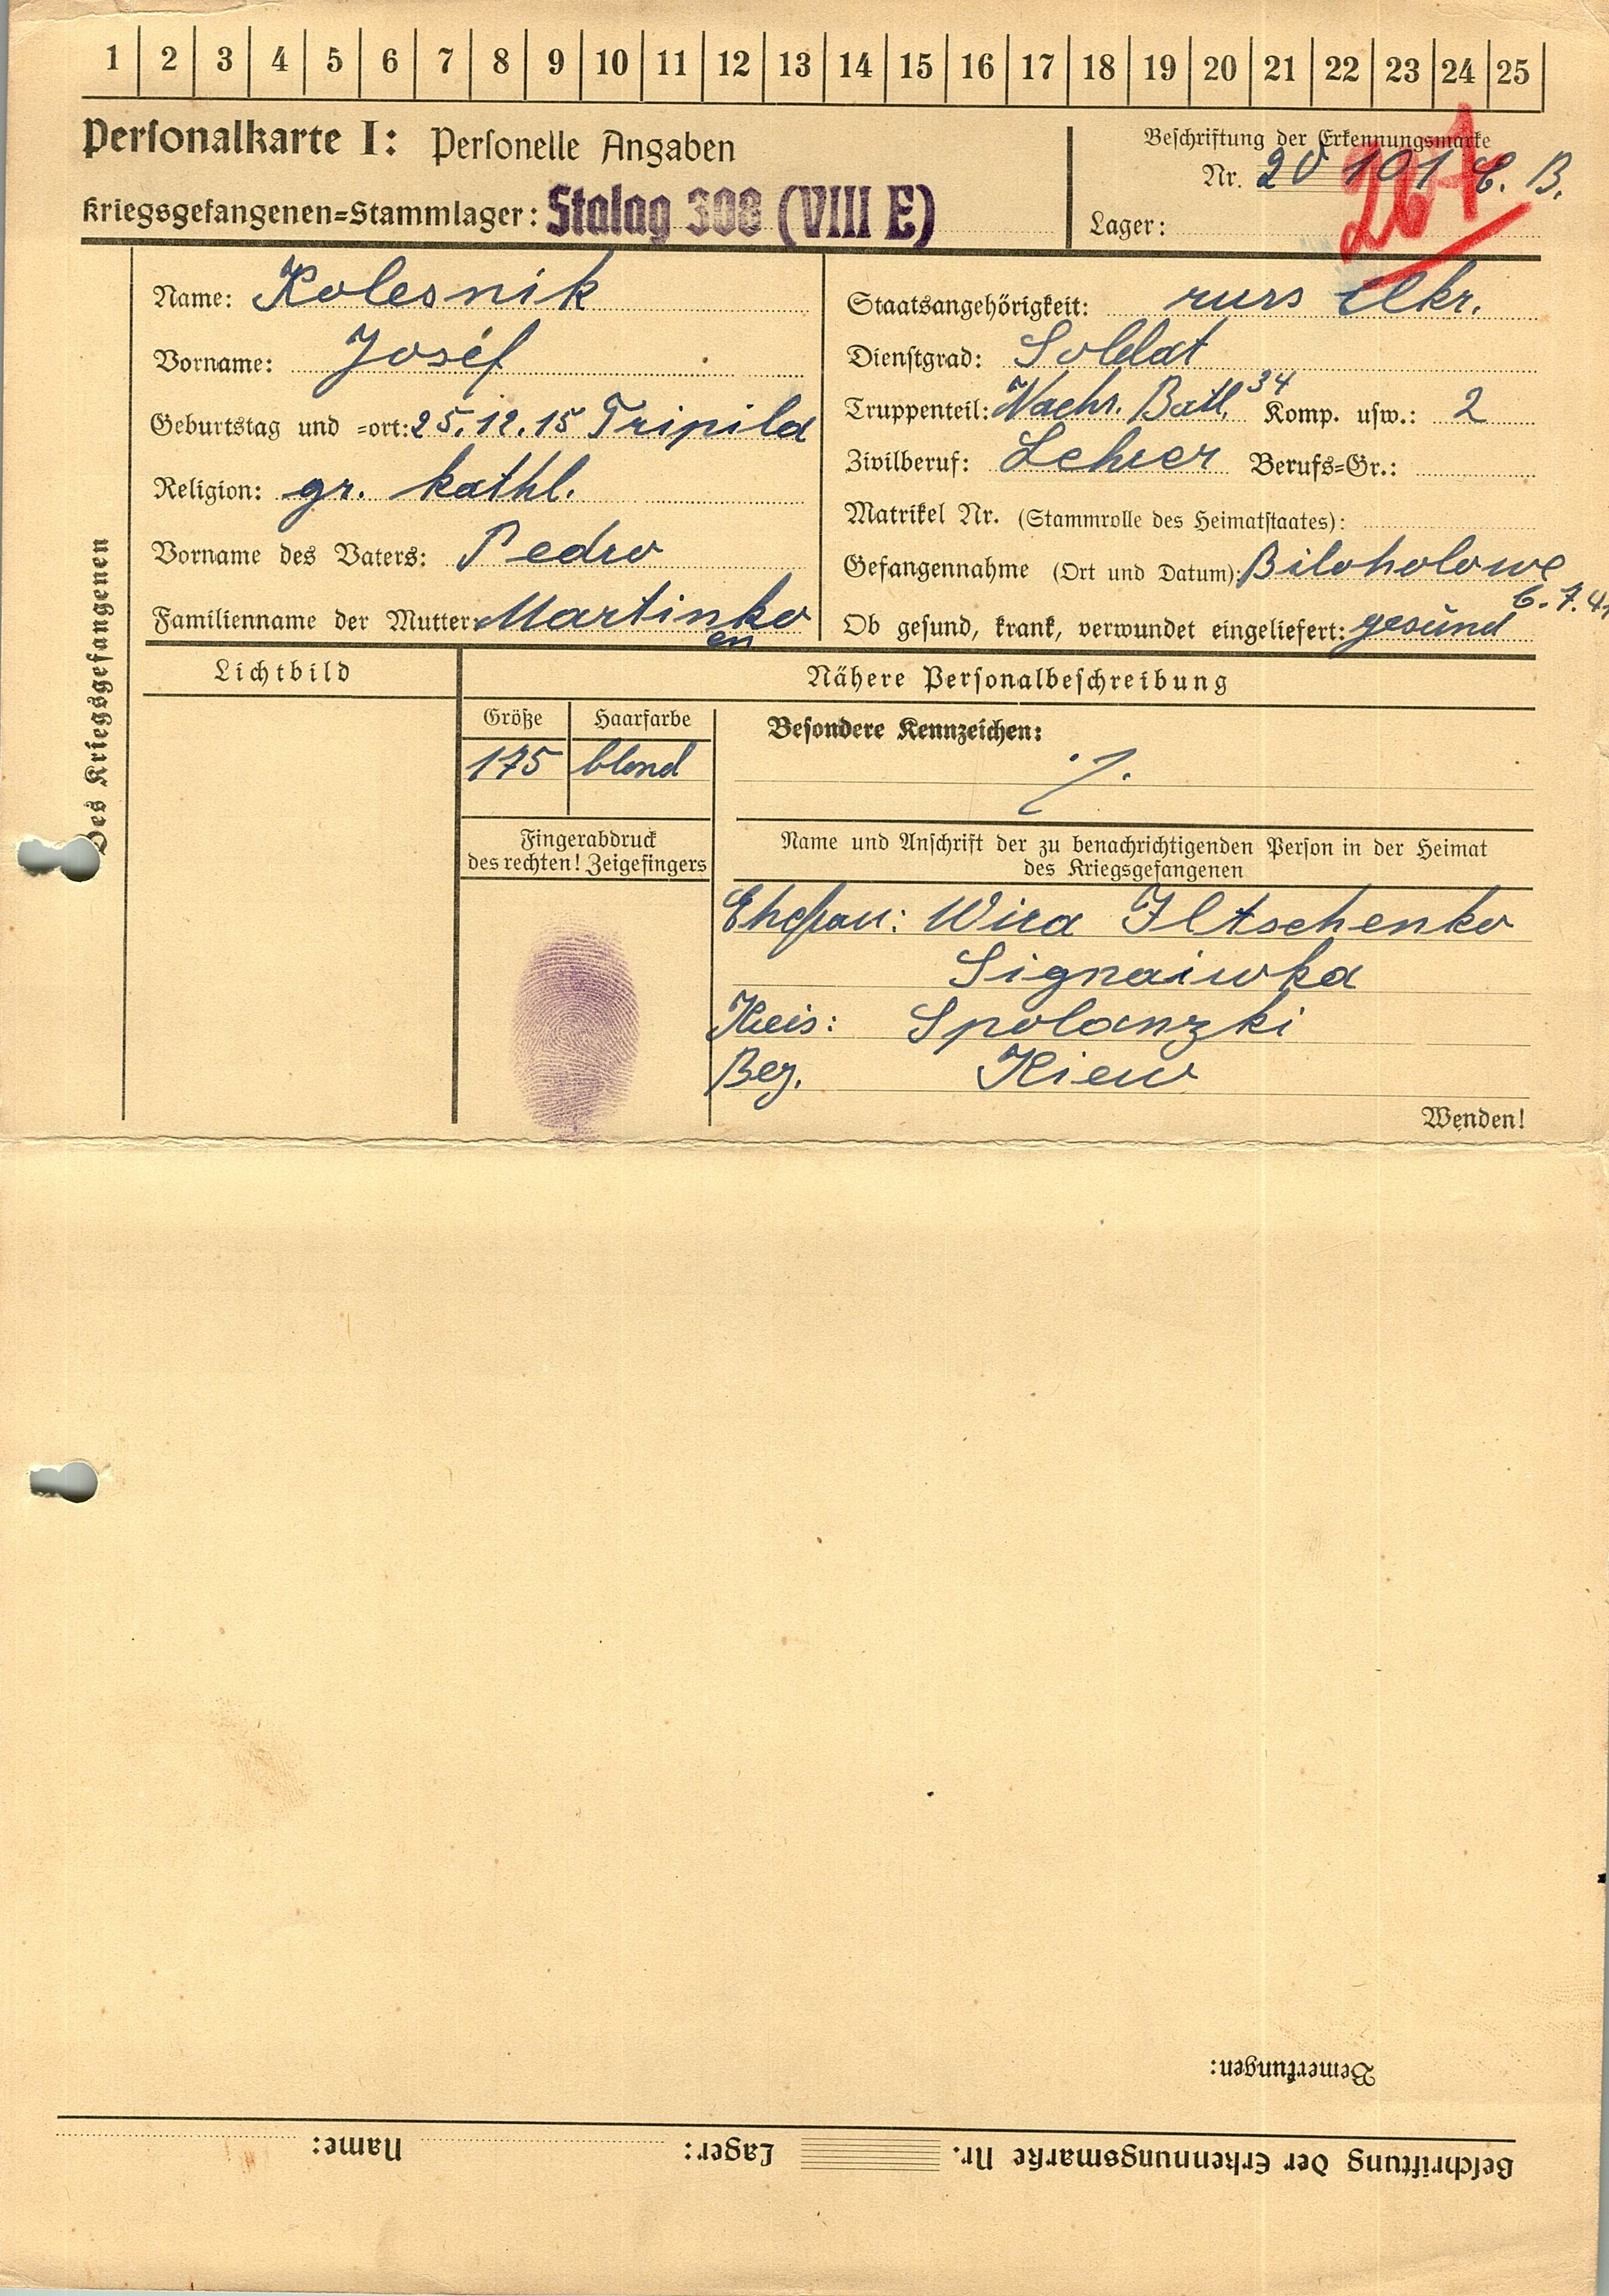 1 2 3 4 5 6 7 8 9 10 11 12 13 14 15 16 17 18 19 20 21 22 23 24 25
Personalkarte I: Personelle Angaben
Kriegsgefangenen=Stammlager: Stalag 308 (VIII E)
Beschriftung der Erkennungsmarke
Nr. 20 101 C. B.
Lager:
Des Kriegsgefangenen
Name: Kolesnik
Vorname: Josef
Geburtstag und =ort: 25.12.15 Tripila
Religion: gr. kathl.
Vorname des Vaters: Pedro
Familienname der Mutter: Martinko
en
Staatsangehörigkeit: russ Ukr.
Dienstgrad: Soldat
Truppenteil: Nachr. Batl. 34 Komp. usw.: 2
Zivilberuf: Lehrer Berufs=Gr.:
Matrikel Nr. (Stammrolle des Heimatstaates):
Gefangennahme (Ort und Datum): Biloholowe
6.7.41
Ob gesund, krank, verwundet eingeliefert: gesund
Lichtbild
Nähere Personalbeschreibung
Größe Haarfarbe
175 blond
Besondere Kennzeichen:
./.
Fingerabdruck
des rechten! Zeigefingers
Name und Anschrift der zu benachrichtigenden Person in der Heimat
des Kriegsgefangenen
Ehefrau: Wira Iltschenko
Signaiwka
Kreis: Spolanzki
Bez. Kiew
Wenden!
Bemerkungen:
Beschriftung der Erkennungsmarke Nr. Lager: Name: